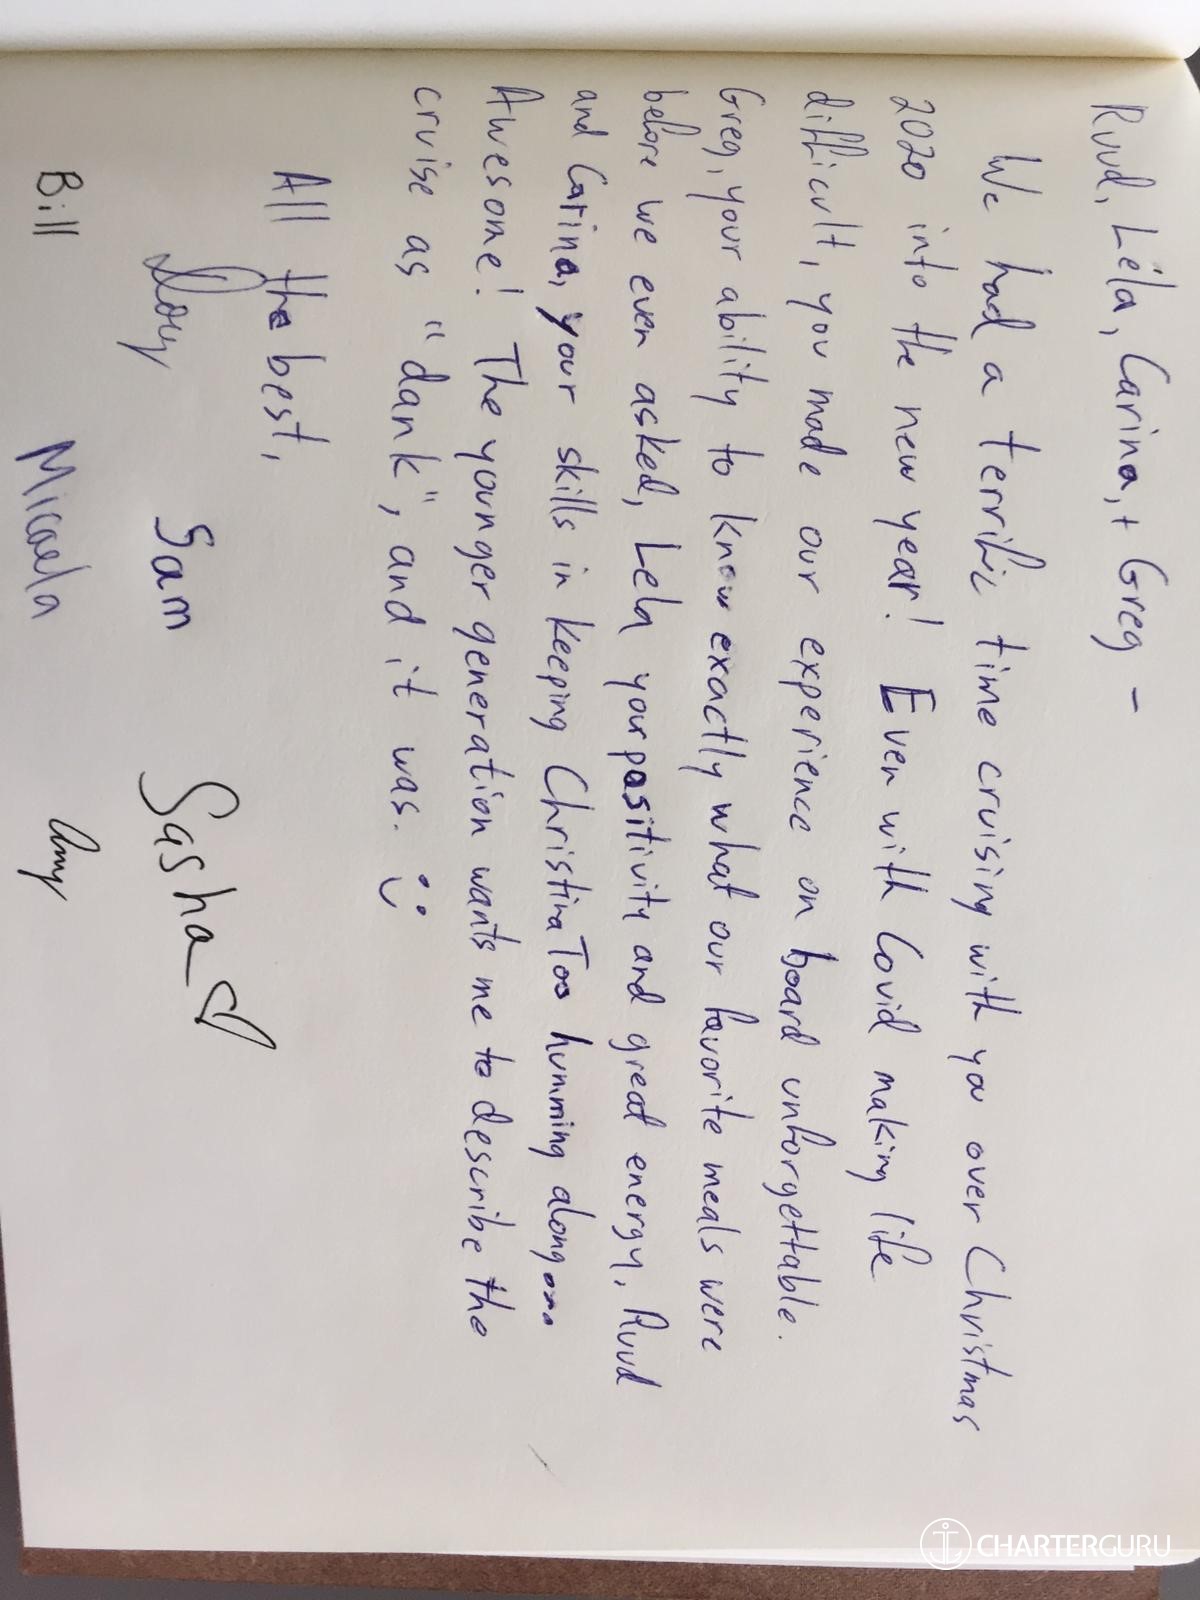 Ruud, Léla, Carina, + Greg -
We had a terrific time cruising with you over Christmas
2020 into the new year! Even with Covid making life
difficult, you made our experience on board unforgettable.
Greg, your ability to know exactly what our favorite meals were
before we even asked, Lela your positivity and great energy, Ruud
and Carina, your skills in keeping Christina Too humming along...
Awesome! The younger generation wants me to describe the
cruise as "dank", and it was. :)
All the best,
Doug Sam Sasha ♡
Bill Micaela Amy
CHARTERGURU